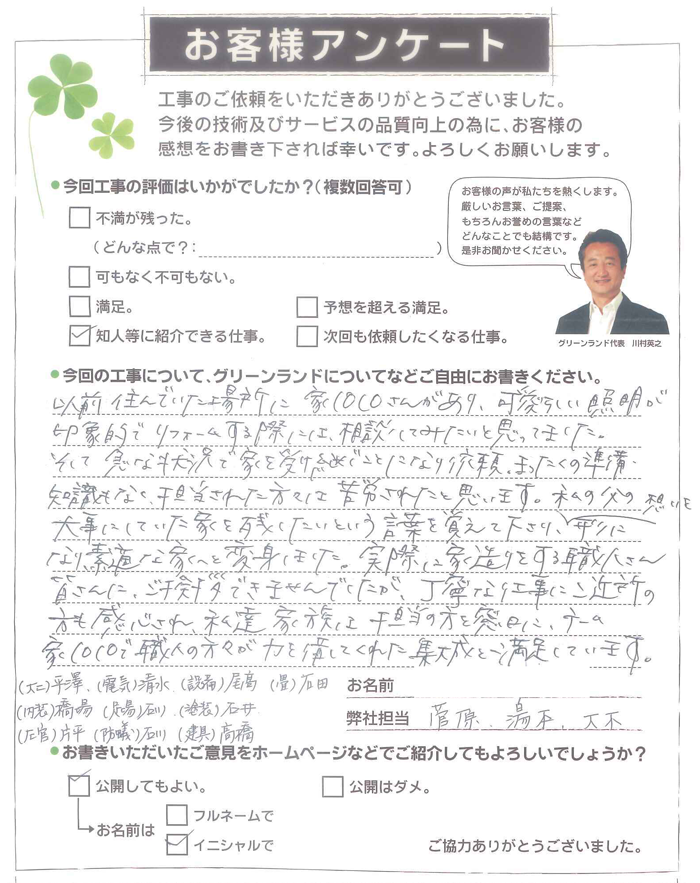 お客様アンケート
工事のご依頼をいただきありがとうございました。
今後の技術及びサービスの品質向上の為に、お客様の
感想をお書き下されば幸いです。よろしくお願いします。
●今回工事の評価はいかがでしたか？（複数回答可）
不満が残った。
（どんな点で？：　）
可もなく不可もない。
満足。
予想を超える満足。
知人等に紹介できる仕事。
次回も依頼したくなる仕事。
お客様の声が私たちを熱くします。
厳しいお言葉、ご提案、
もちろんお誉めの言葉など
どんなことでも結構です。
是非お聞かせください。
グリーンランド代表　川村英之
●今回の工事について、グリーンランドについてなどご自由にお書きください。
以前住んでいた場所に 家COCOさんがあり、可愛らしい照明が
印象的でリフォームする際には、相談してみたいと思ってました。
そして 急な状況で家を受け ことになり依頼。まったくの準備・
知識もなく、担当された方々は苦労されたと思います。私の父の想いを
大事にしていた家を残したいという言葉を覚えて下さり、
なり素適な家へと変身しました。実際に家造りをする職人さん
皆さんに、ご挨拶できませんでしたが、丁寧な工事にご近所の
方も感心され、私達家族は担当の方を窓口に、チーム
家COCOで職人の方々が力を すしてくれた集大成と満足しています。
(大工)平澤、(電気)清水、(設備)尾高 (畳)石田
(内装)橋場 (足場)石川 (塗装)石井
(左官)片平 (防蟻)石川 (建具)高橋
お名前
弊社担当 菅原、湯本、大木
●お書きいただいたご意見をホームページなどでご紹介してもよろしいでしょうか？
公開してもよい。
公開はダメ。
お名前は
フルネームで
イニシャルで
ご協力ありがとうございました。